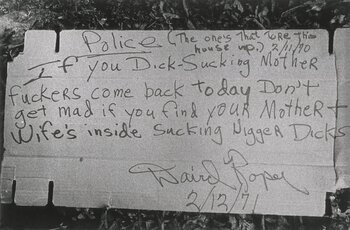 Police (The one's that tore this
house up.) 2/11/70
If you Dick-Sucking Mother
fuckers come back today Don't
get mad if you find your Mother +
Wife's inside Sucking Nigger Dicks
David Roper
2/12/71